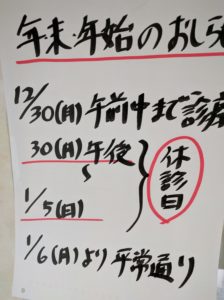 年末・年始のおしら
12/30(月)午前中まで診療
30(月)午後
〜
1/5(日)
休診日
1/6(月)より平常通り